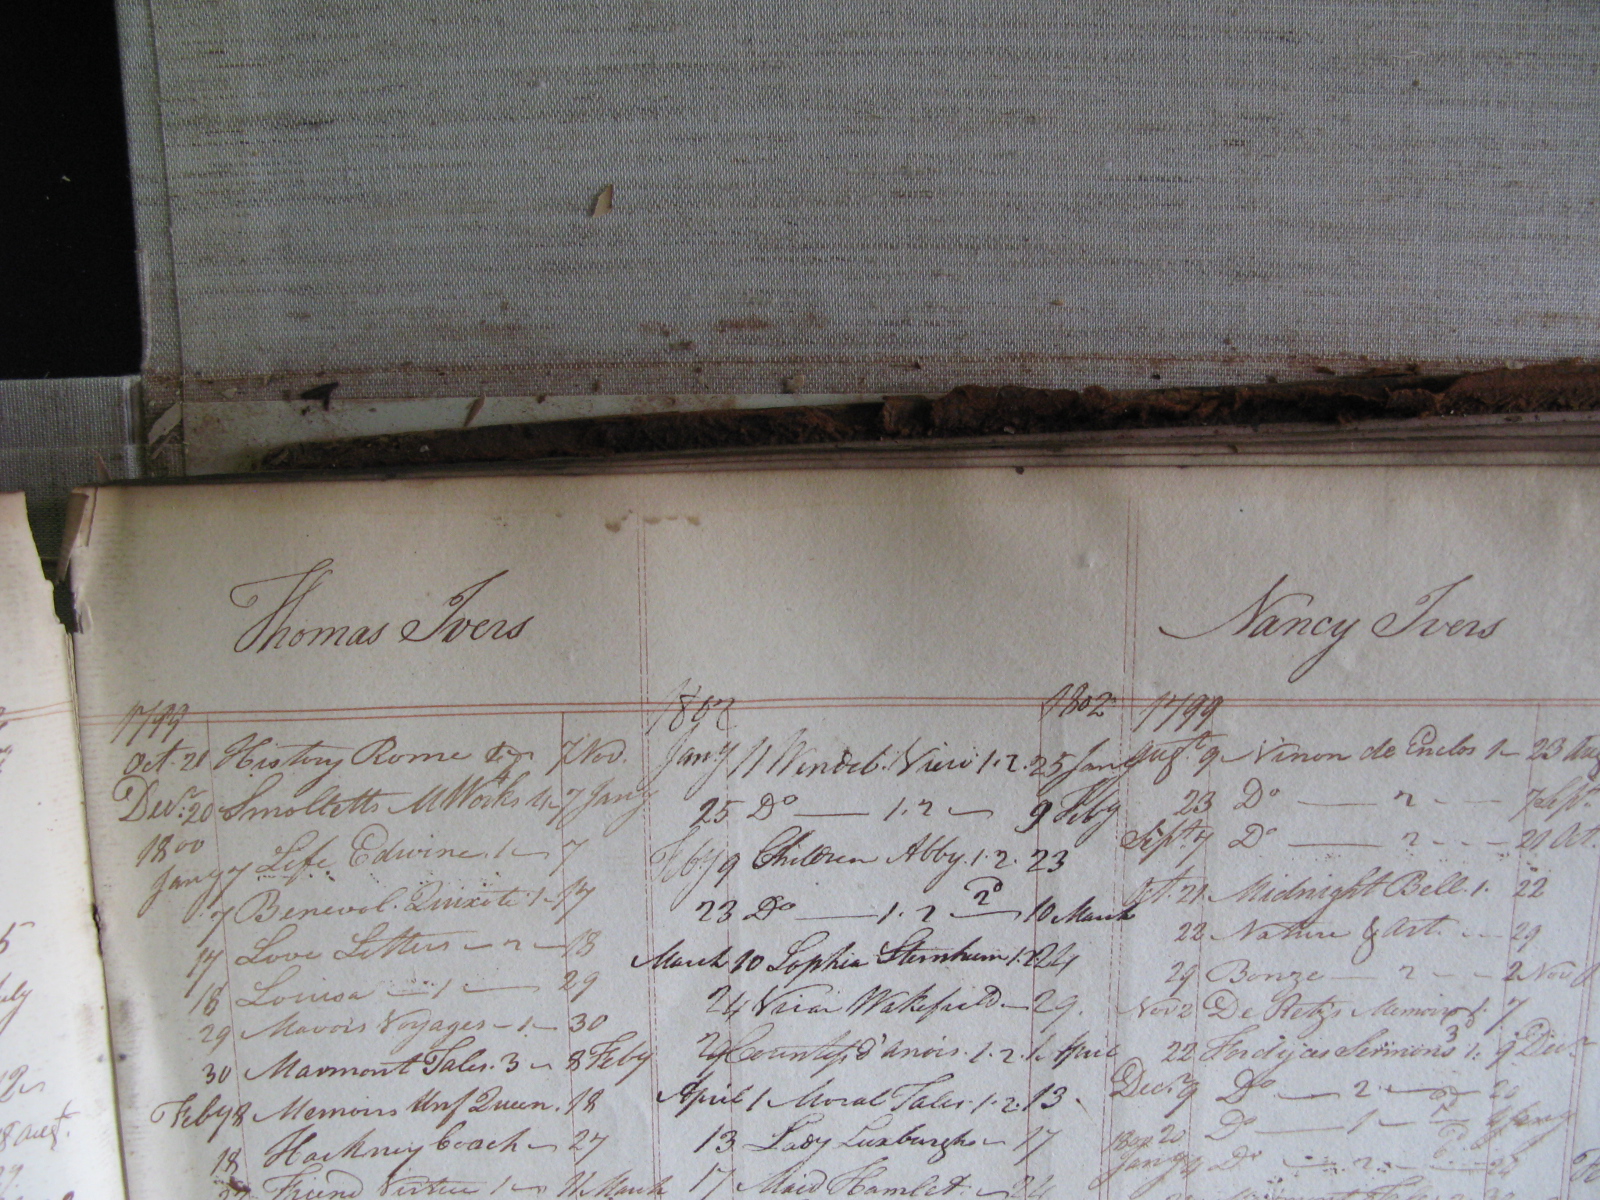 Thomas Ivers
1799
Oct. 21 History Rome 7 Nov.
Decr. 20 Smolletts M Works 4 7 Jany
1800
Jany 7 Life Edwine. 1 7
7 Benevol. Quixote 1 17
17 Love Letters 2 18
18 Louisa 1 29
29 Mavors Voyages 1 30
30 Marmont Tales. 3 8 Feby
Feby 8 Memoirs Unf Queen. 18
18 Hackney Coach 27
27 Friend Virtue 1 11 March
1802 1802
Jany 11 Wendeb. View 1. 2. 25 Jany
25 Do 1. 2 9 Feby
Feby 9 Children Abby. 1. 2. 23
23 Do 1. 2 2d 10 March
March 10 Sophia Sternheim 1. 2 24
24 Vicar Wakefield 29.
29 Countess d'anois. 1. 2. 1 April
April 1 Moral Tales. 1. 2. 13
13 Lady Luxburgh 17
17 Maid Hamlet. 24
Nancy Ivers
1799
Augt. 9 Ninon de Enclos 1 23 Aug
23 Do 2 7 Sept.
Sept. 7 Do 2 21 Oct.
Oct. 21 Midnight Bell. 1. 22
22 Nature & Art. 29
29 Bonze 2 2 Nov
Nov 2 De Retz's Memoirs 1. 7
22 Fordyces Sermons 1. 9 Decr
Decr. 9 Do 2. 20
20 Do 1 4 Jany
1800
Jany 4 Do 2. 22